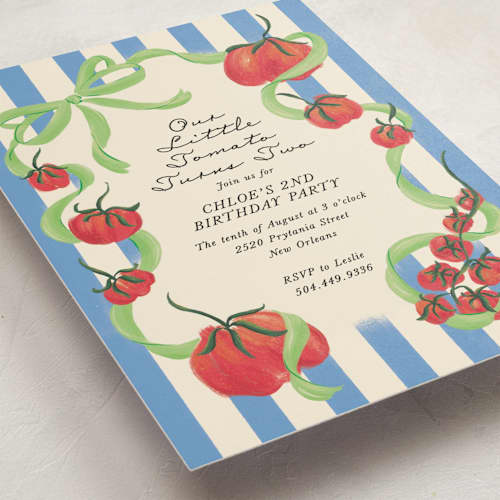 Our
Little
Tomato
Turns Two
Join us for
CHLOE'S 2ND
BIRTHDAY PARTY
The tenth of August at 3 o'clock
2520 Prytania Street
New Orleans
RSVP to Leslie
504.449.9336